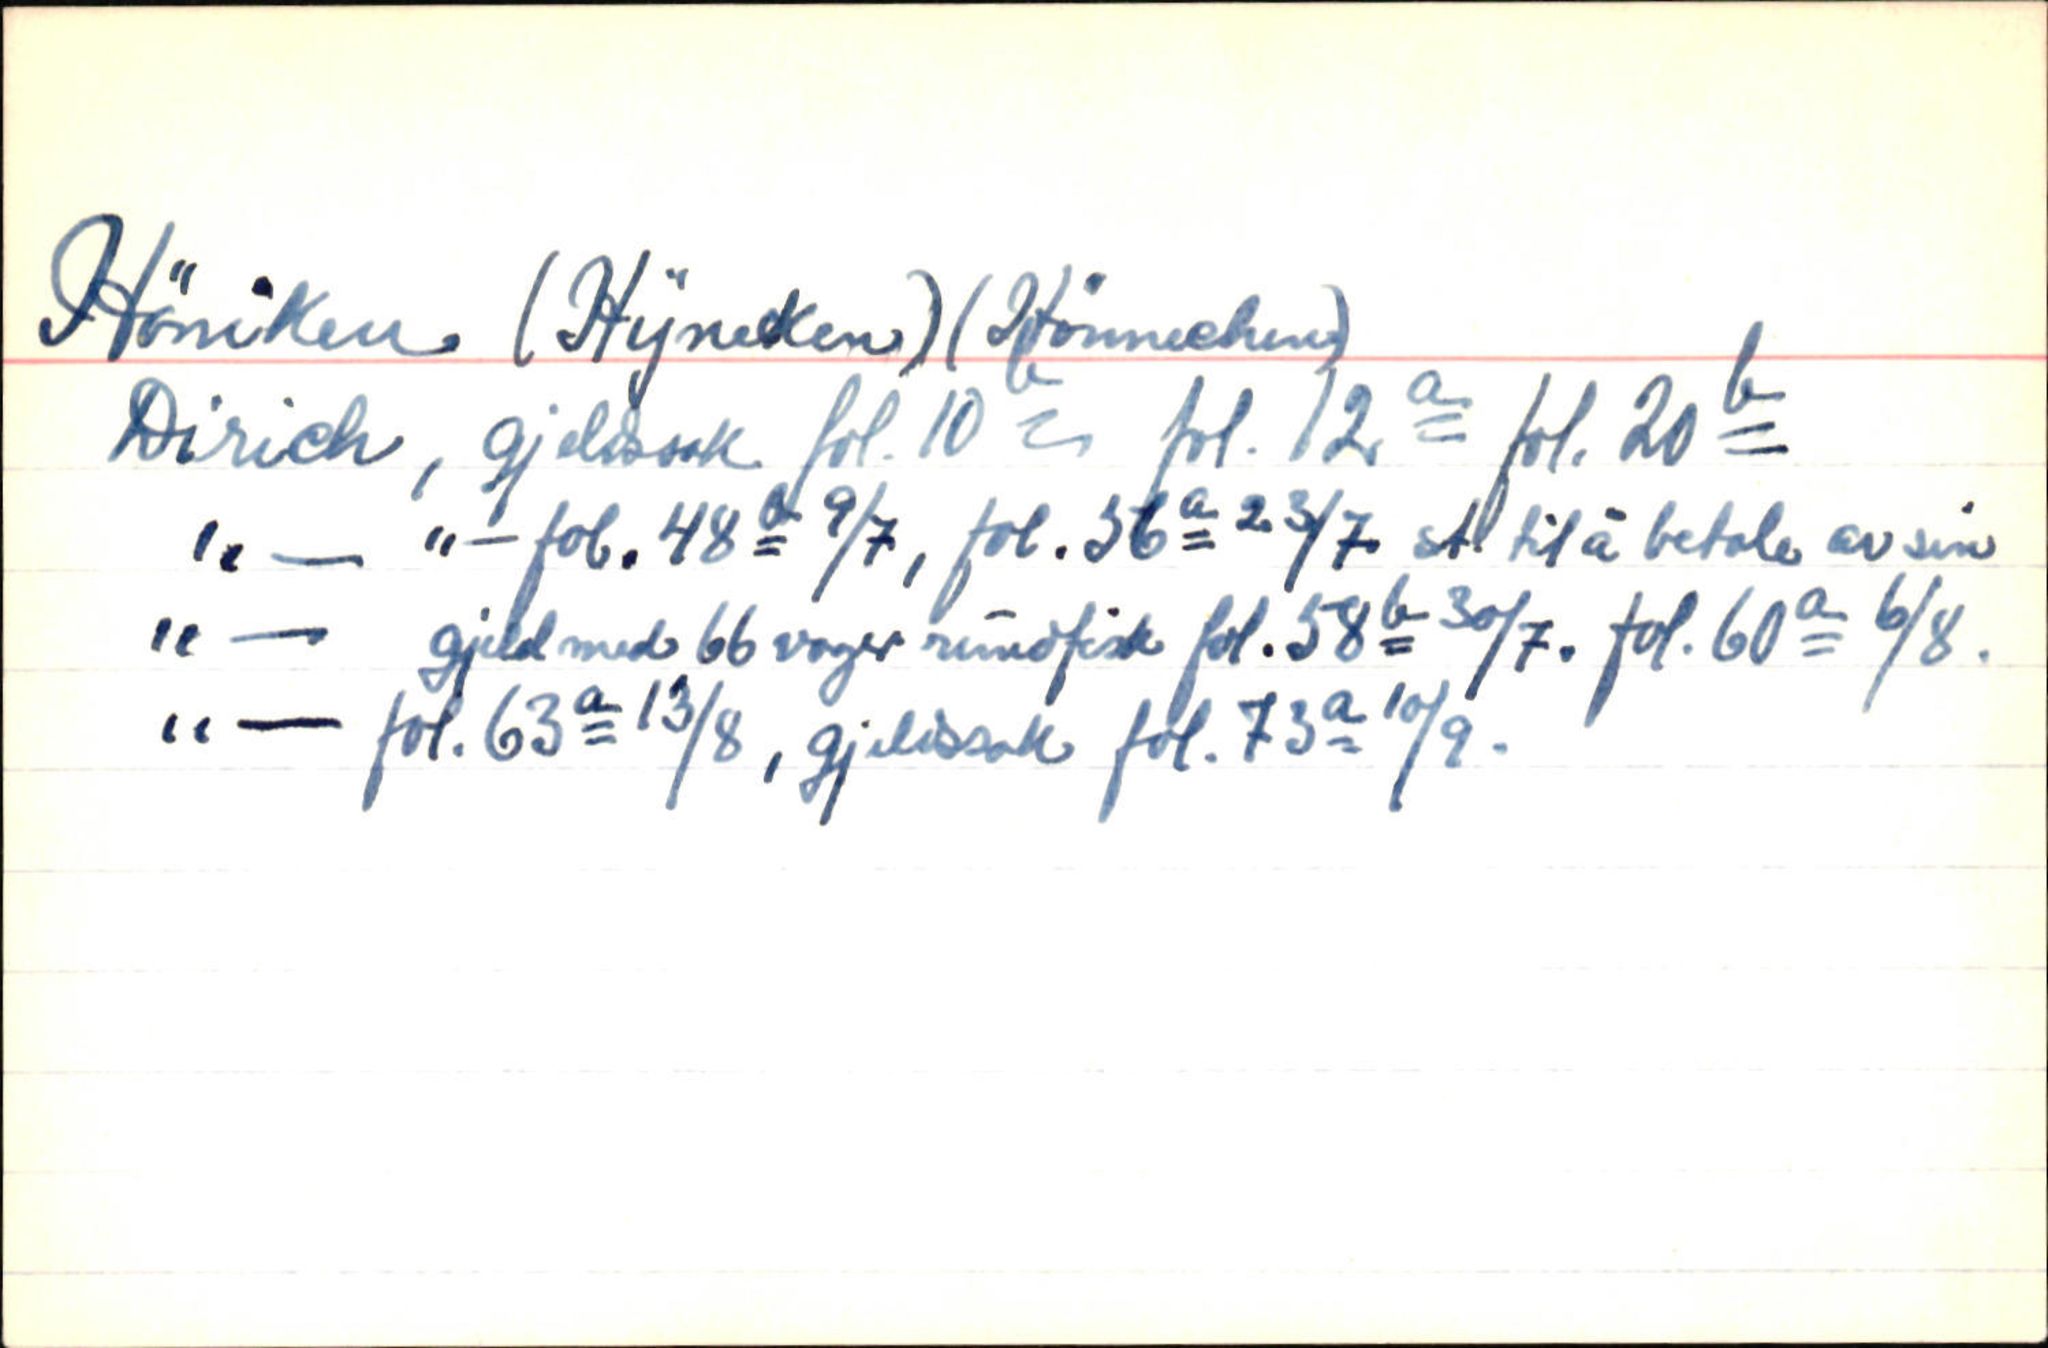 Höniken (Hÿneken) (Hönnechen)
Dirich, gjeldssak fol. 10 b fol. 12 a fol. 20 b
" — " — fol. 48 a 9/7, fol. 56 a 23/7 til å betale av sin
" — gjeld med 66 voger rundfisk fol. 58 b 30/7. fol. 60 a 6/8.
" — fol. 63 a 13/8, gjeldssak fol. 73 a 10/9.